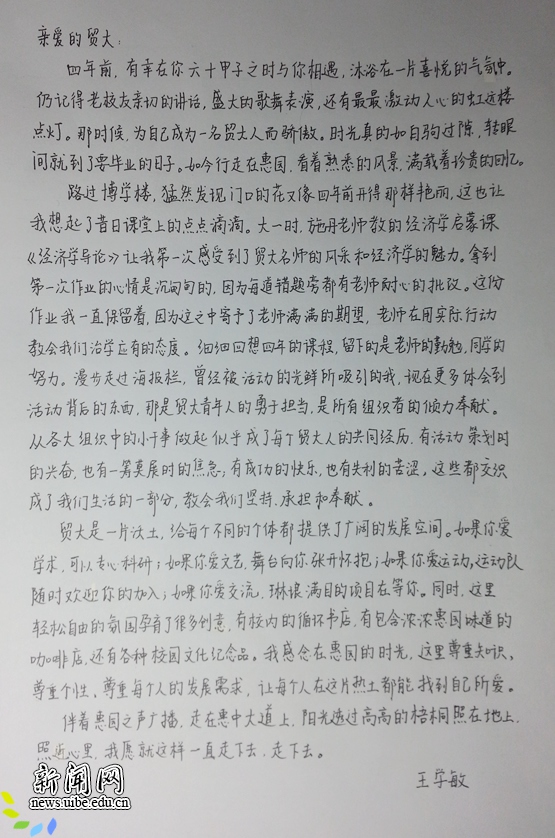 亲爱的贸大:
四年前,有幸在你六十甲子之时与你相遇,沐浴在一片喜悦的气氛中。
仍记得老校友亲切的讲话,盛大的歌舞表演,还有最最激动人心的虹远楼
点灯。那时候,为自己成为一名贸大人而骄傲。时光真的如白驹过隙,转眼
间就到了要毕业的日子。如今行走在惠园,看着熟悉的风景,满载着珍贵的回忆。
路过博学楼,猛然发现门口的花又像四年前开得那样艳丽,这也让
我想起了昔日课堂上的点点滴滴。大一时,施丹老师教的经济学启蒙课
《经济学导论》让我第一次感受到了贸大名师的风采和经济学的魅力。拿到
第一次作业的心情是沉甸甸的,因为每道错题旁都有老师耐心的批改。这份
作业我一直保留着,因为这之中寄予了老师满满的期望,老师在用实际行动
教会我们治学应有的态度。细细回想四年的课程,留下的是老师的勤勉,同学的
努力。漫步走过海报栏,曾经被活动的光鲜所吸引的我,现在更多体会到
活动背后的东西,那是贸大青年人的勇于担当,是所有组织者的倾力奉献。
从各大组织中的小干事做起似乎成了每个贸大人的共同经历,有活动策划时
的兴奋,也有一筹莫展时的焦急;有成功的快乐,也有失利的苦涩,这些都交织
成了我们生活的一部分,教会我们坚持、承担和奉献。
贸大是一片沃土,给每个不同的个体都提供了广阔的发展空间。如果你爱
学术,可以专心科研;如果你爱文艺,舞台向你张开怀抱;如果你爱运动,运动队
随时欢迎你的加入;如果你爱交流,琳琅满目的项目在等你。同时,这里
轻松自由的氛围孕育了很多创意,有校内的循环书店,有包含浓浓惠园味道的
咖啡店,还有各种校园文化纪念品。我感念在惠园的时光,这里尊重知识、
尊重个性、尊重每个人的发展需求,让每个人在这片热土都能找到自己所爱。
伴着惠园之声广播,走在惠中大道上,阳光透过高高的梧桐照在地上,
照近心里,我愿就这样一直走下去,走下去。
王学敏
新闻网
news.uibe.edu.cn